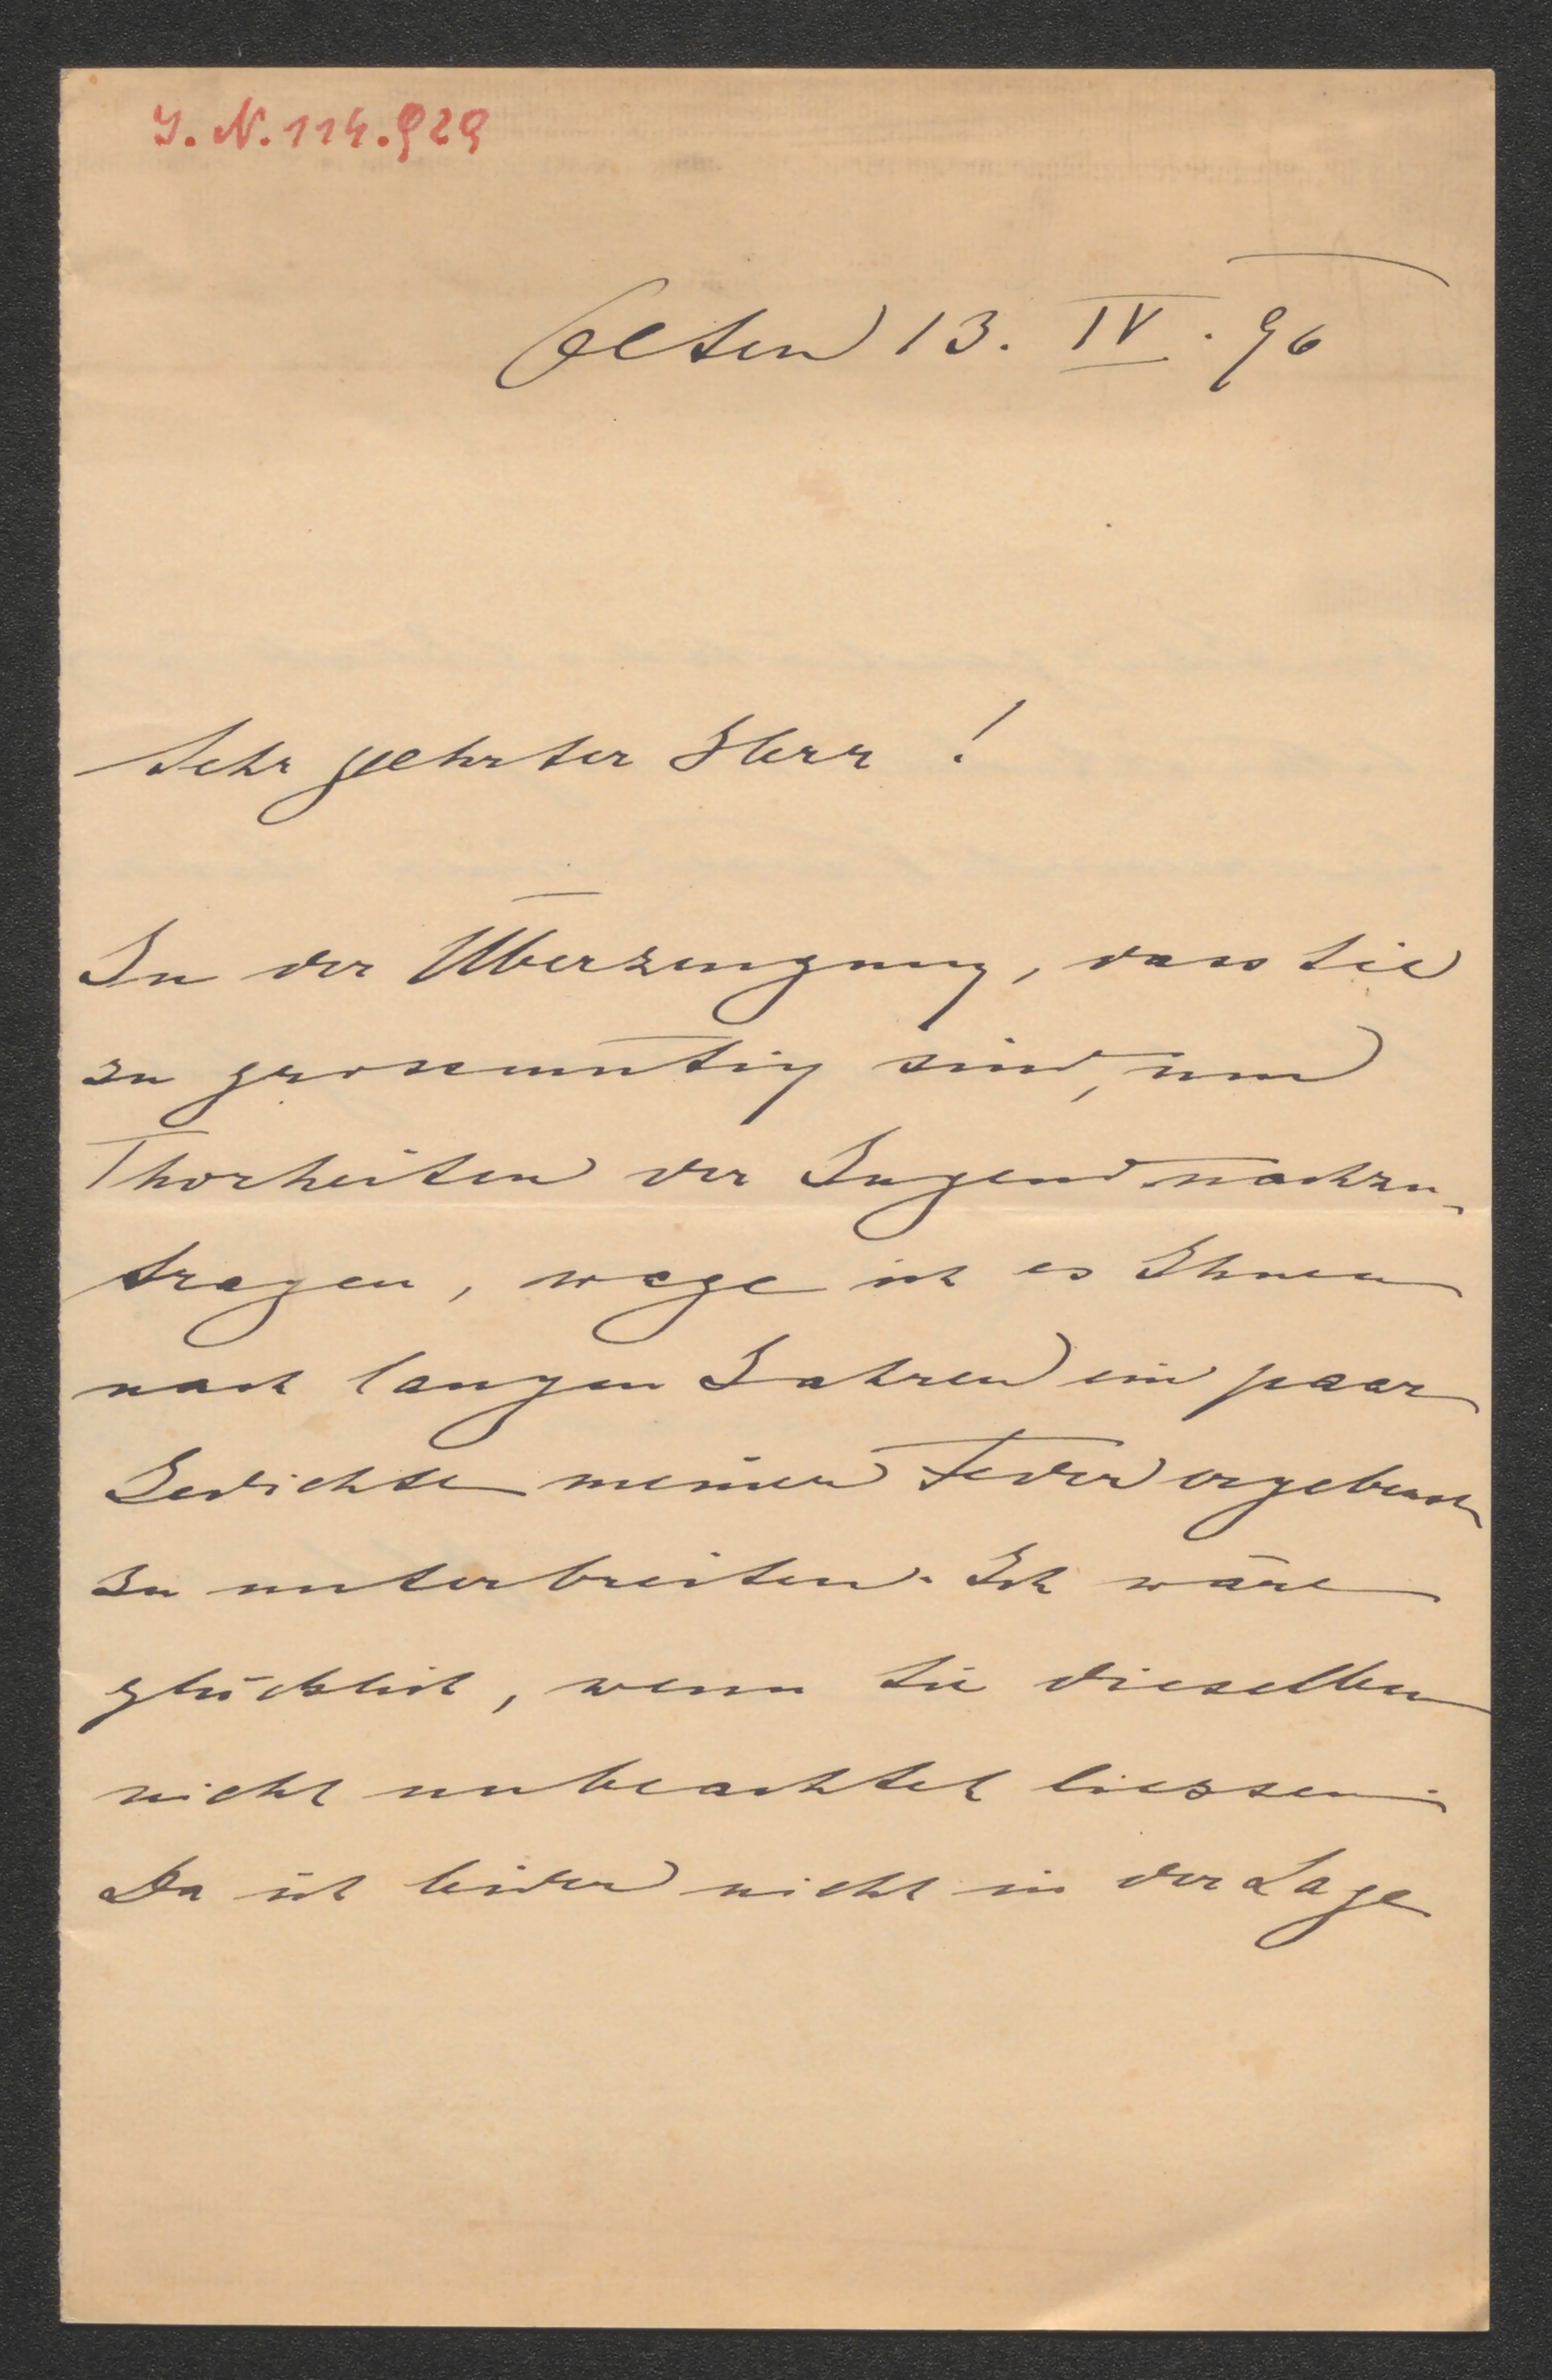 I. N. 114.929
Olten 13. IV. 96
Sehr geehrter Herr !
In der Überzeugung, dass Sie
zu grossmütig sind, um
Thorheiten der Jugend nachzu-
tragen, wage ich es Ihnen
nach langen Jahren ein paar
Gedichte meiner Feder ergebenst
zu unterbreiten. Ich wäre
glücklich, wenn Sie dieselben
nicht unbeachtet liessen.
Da ich leider nicht in der Lage